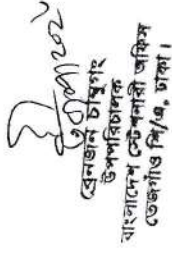 রেনজান চাকুগাই
উপপরিচালক
বাংলাদেশ স্টেশনারী অফিস
তেজগাঁও শি/এ, ঢাকা।